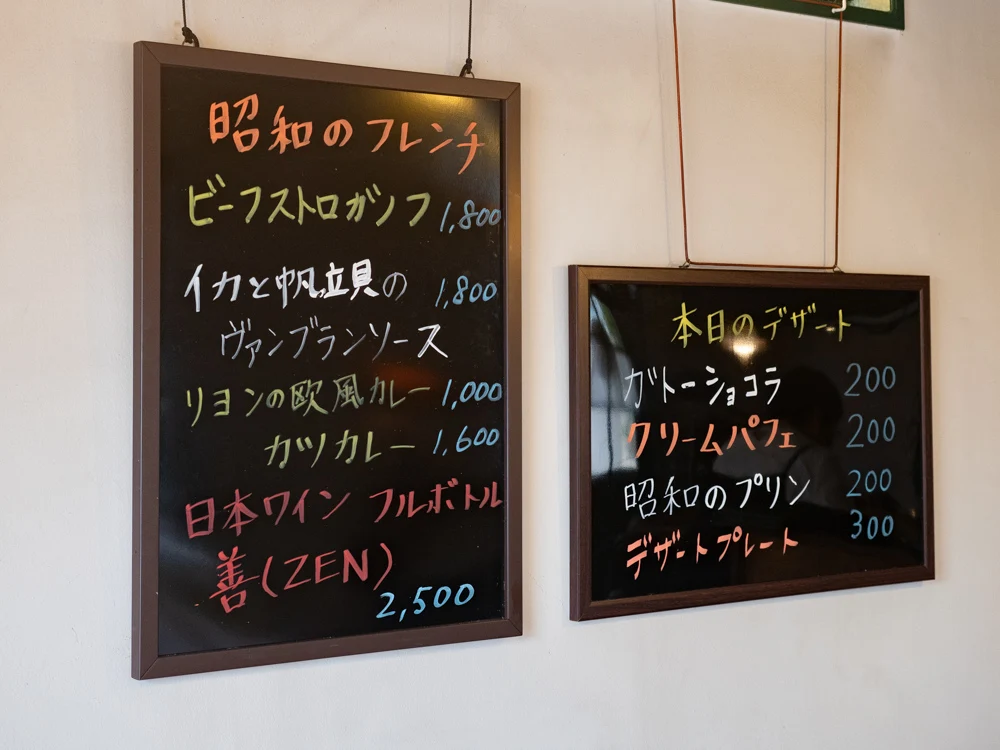 昭和のフレンチ
ビーフストロガノフ 1,800
イカと帆立貝の 1,800
ヴァンブランソース
リヨンの欧風カレー 1,000
カツカレー 1,600
日本ワイン フルボトル
善(ZEN)
2,500
本日のデザート
ガトーショコラ 200
クリームパフェ 200
昭和のプリン 200
デザートプレート 300